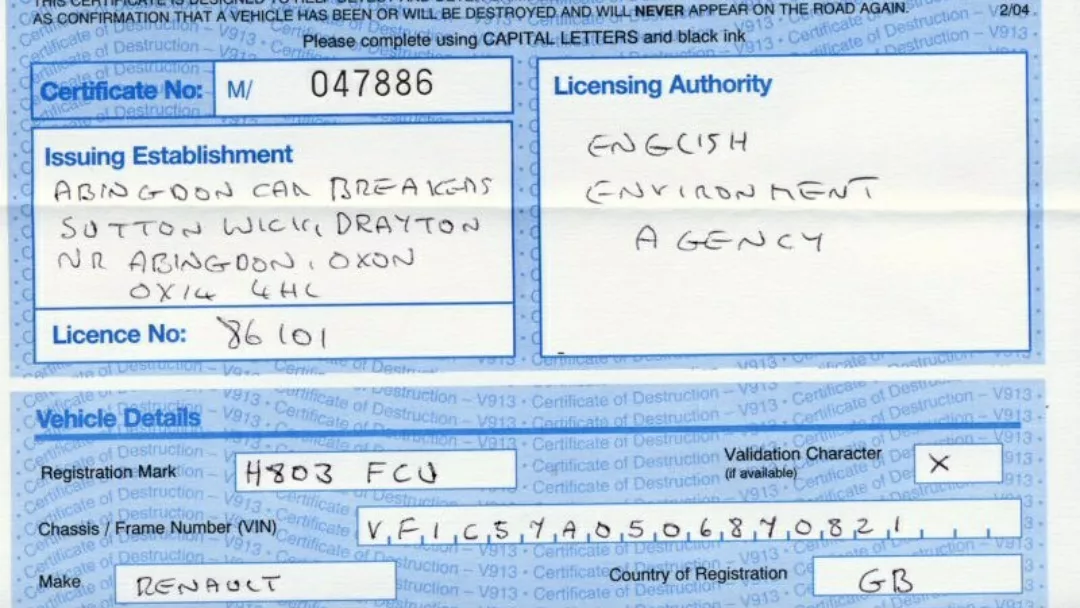 AS CONFIRMATION THAT A VEHICLE HAS BEEN OR WILL BE DESTROYED AND WILL NEVER APPEAR ON THE ROAD AGAIN. 2/04
Please complete using CAPITAL LETTERS and black ink
Certificate No: M/ 047886
Licensing Authority
ENGLISH
ENVIRONMENT
AGENCY
Issuing Establishment
ABINGDON CAR BREAKERS
SUTTON WICK, DRAYTON
NR ABINGDON, OXON
OX14 4HL
Licence No: 86101
Vehicle Details
Registration Mark H803 FCU
Validation Character (if available) X
Chassis / Frame Number (VIN) VF1C57A0506870821
Make RENAULT
Country of Registration GB